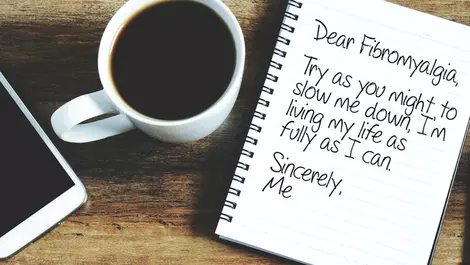 Dear Fibromyalgia,
Try as you might to
slow me down, I'm
living my life as
fully as I can.
Sincerely,
Me